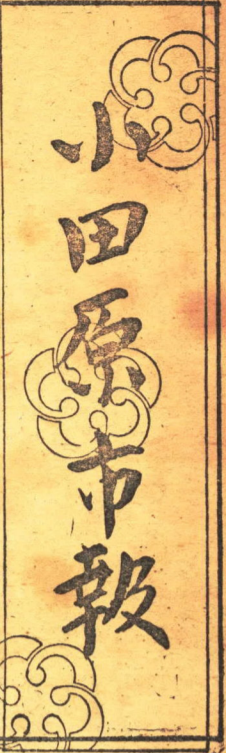 小田原市報